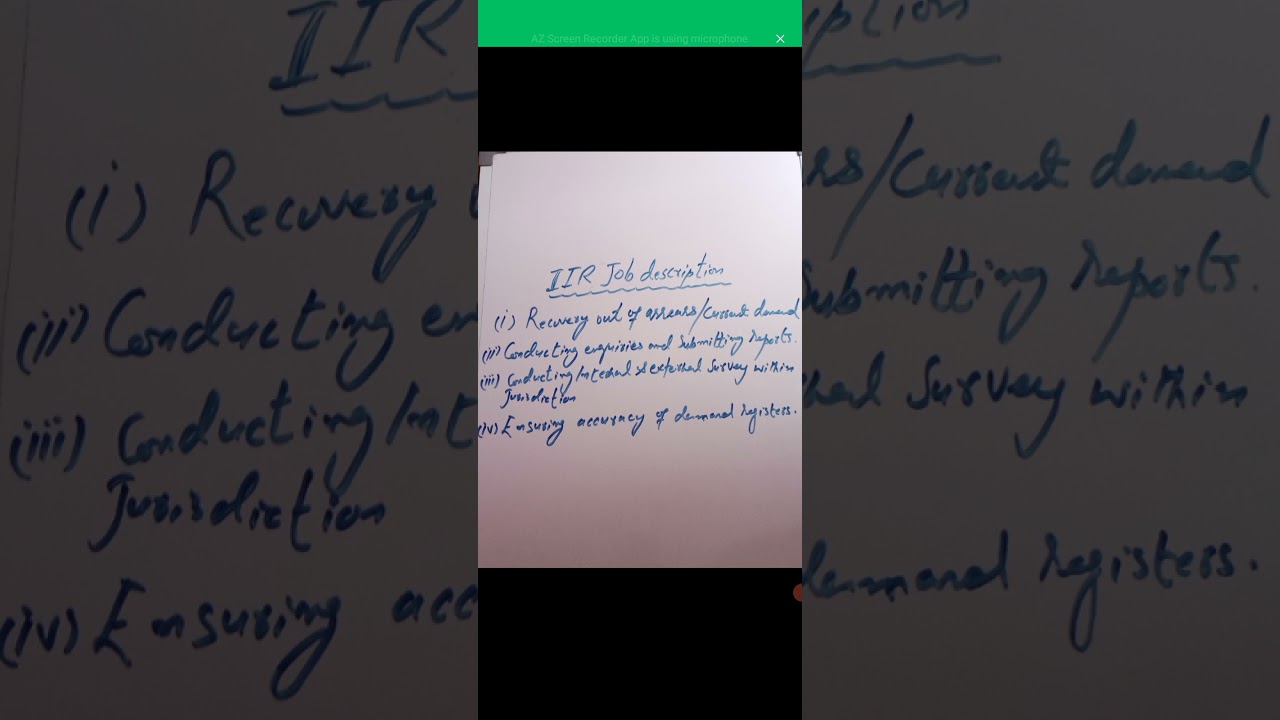 AZ Screen Recorder App is using microphone
IIR Job description
(i) Recovery out of arrears/Current demand
(ii) Conducting enquiries and Submitting reports.
(iii) Conducting Internal & external Survey within
Jurisdiction
(iv) Ensuring accuracy of demand registers.